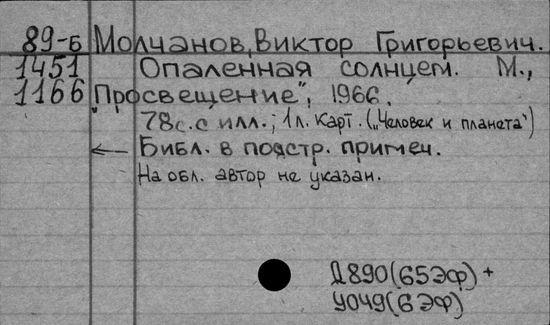 89-Б Молчанов, Виктор Григорьевич.
1451 Опаленная солнцем. М.,
1166 "Просвещение", 1966.
78с. с илл.; 1л. карт. („Человек и планета")
← Библ. в подстр. примеч.
На обл. автор не указан.
Д890(65Эф) +
У049(6Эф)